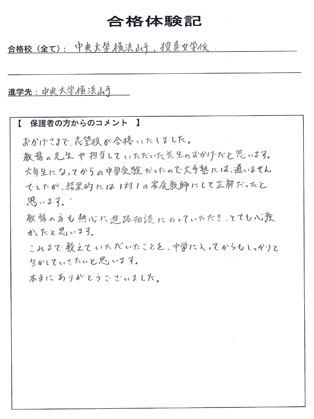 合格体験記
合格校（全て）: 中央大学横浜山手, 捜真女学校
進学先: 中央大学横浜山手
【 保護者の方からのコメント 】
おかげさまで、志望校が合格いたしました。
教務の先生や担当していただいた先生のおかげだと思います。
六年生になってからの中学受験だったので大手塾には、通いません
でしたが、結果的には1対1の家庭教師にして正解だったと
思います。
教務の方も熱心に進路相談にのっていただき、とても心強
かったと思います。
これまで教えていただいたことを、中学に入ってからもしっかりと
生かしていきたいと思います。
本当にありがとうございました。